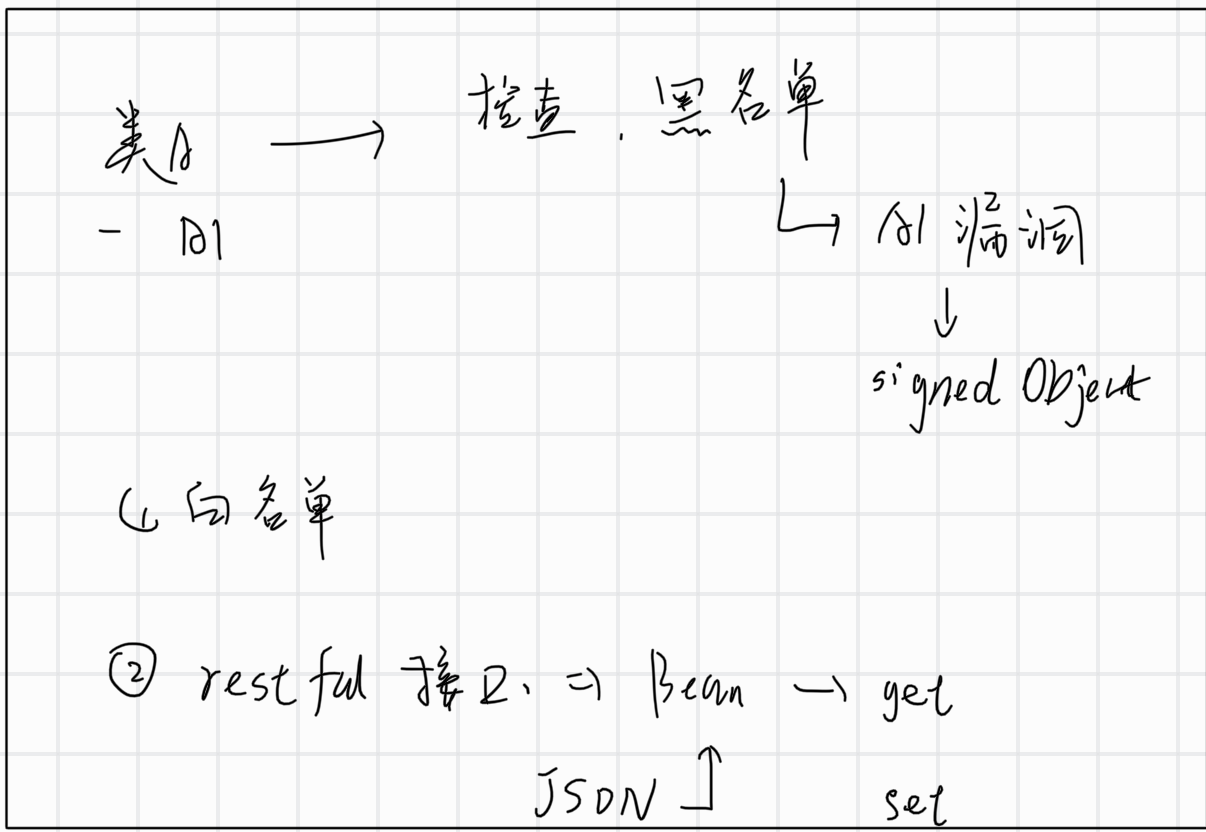 类A → 检查. 黑名单
- A1 ↳ A1 漏洞
↓
signed Object
↳ 白名单
② restful 接口. ⇒ Bean → get
JSON ↑ set